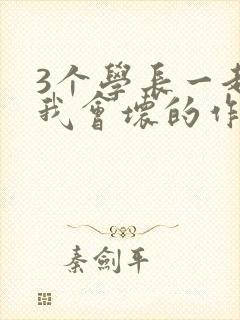 3个學長一起
我會壞的作
秦劍平